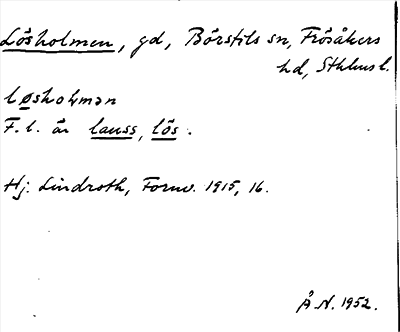 Lösholmen, gd, Börstils sn, Frösåkers
hd, Sthlms l.
løsholmən
F. l. är lauss, lös.
Hj. Lindroth, Fornv. 1915, 16.
Å. N. 1952.